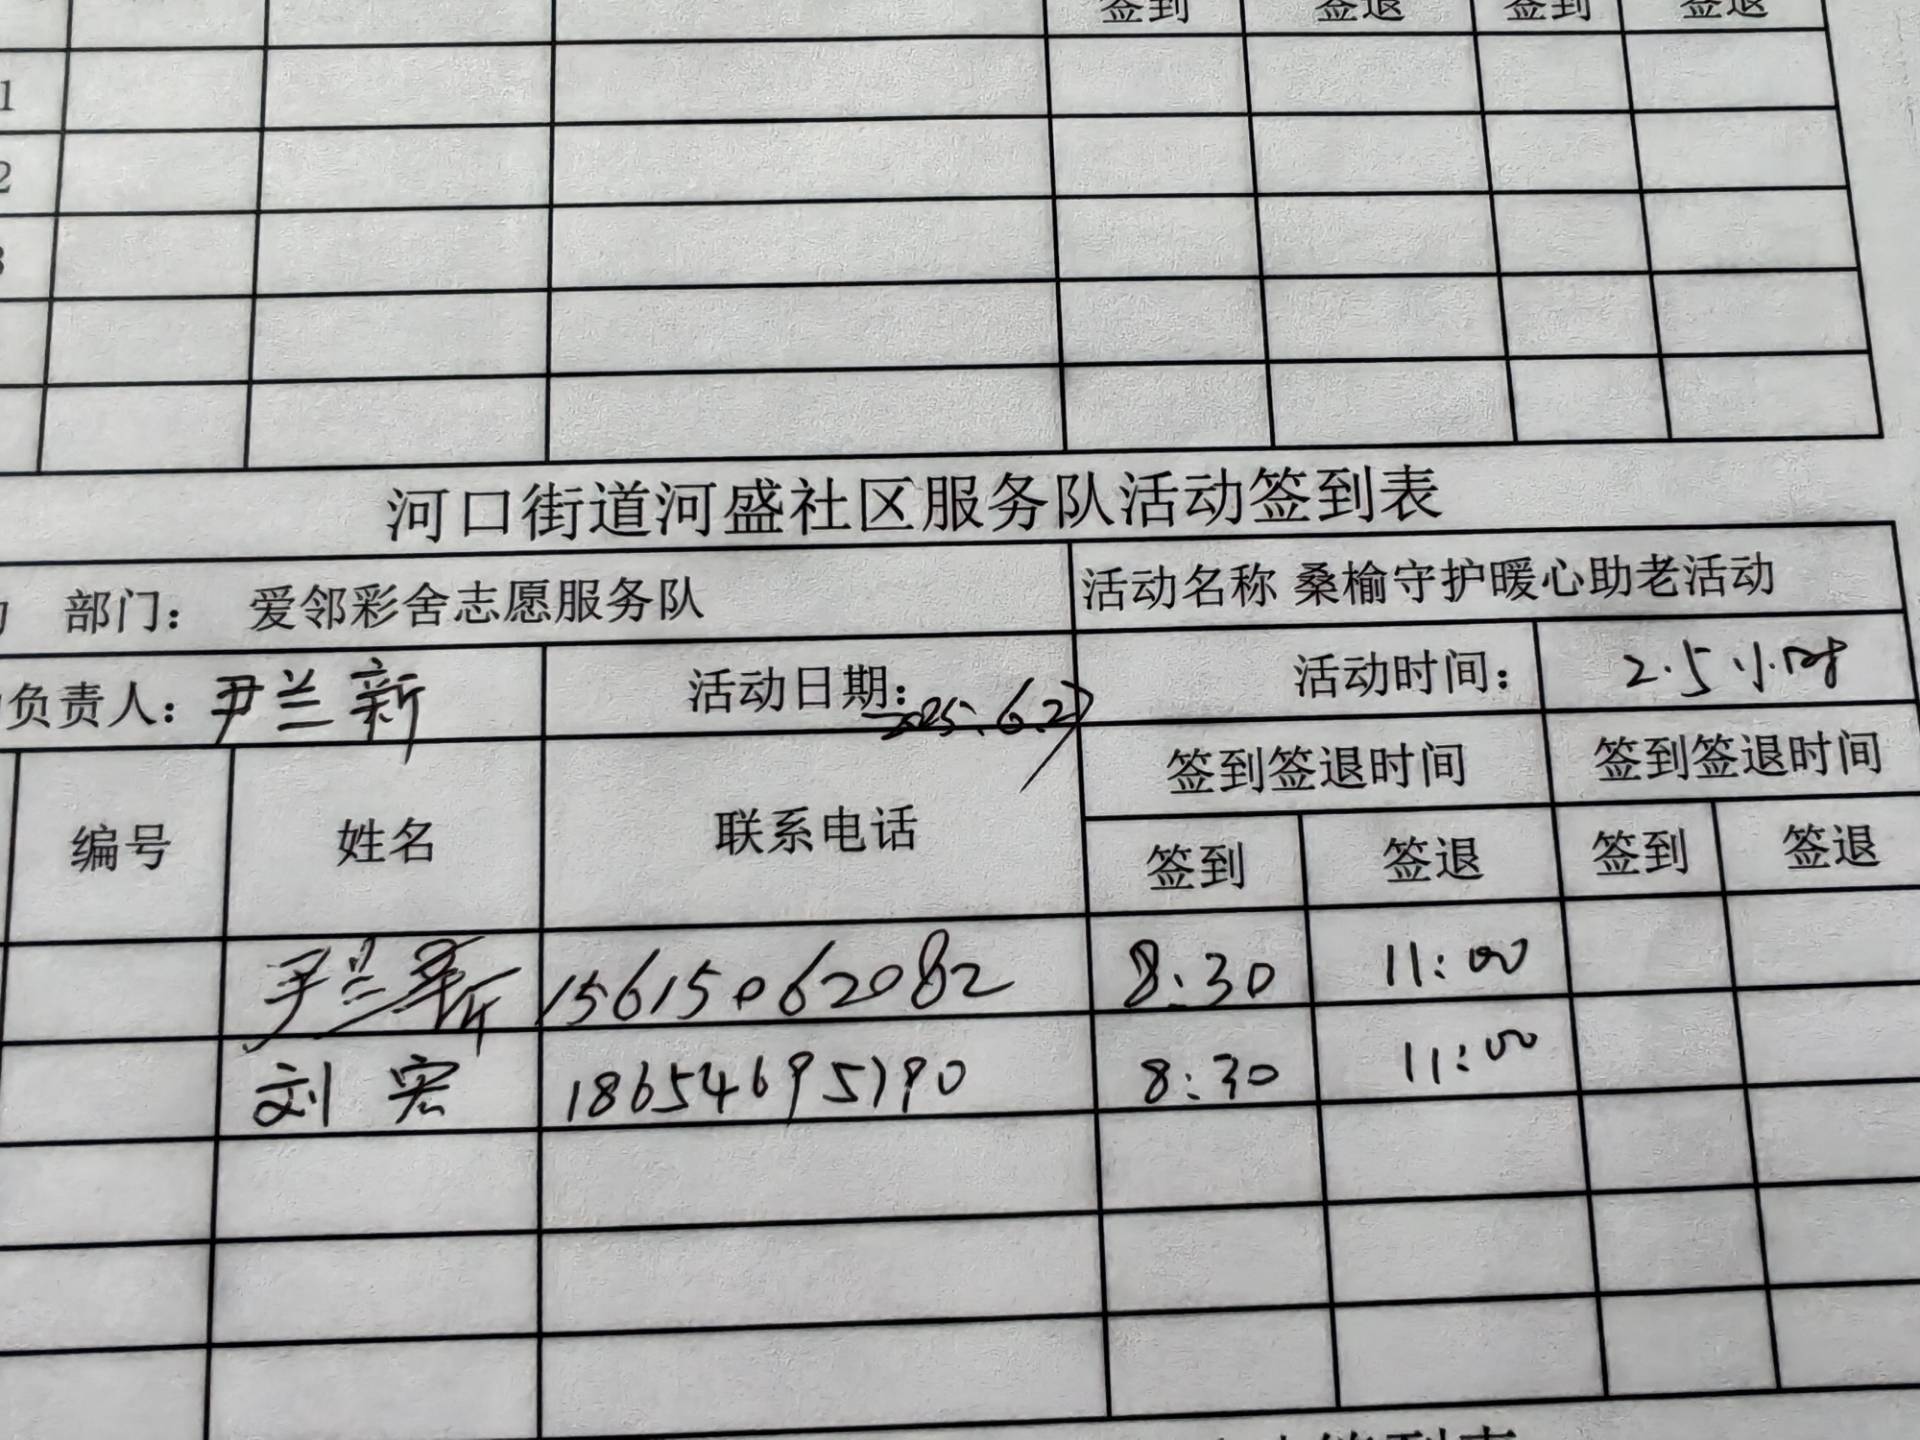 签到 签退 签到 签退
1
2
3
河口街道河盛社区服务队活动签到表
部门: 爱邻彩舍志愿服务队 活动名称 桑榆守护暖心助老活动
负责人: 尹兰新 活动日期: 2025.6.27 活动时间: 2.5小时
编号 姓名 联系电话 签到签退时间 签到签退时间
签到 签退 签到 签退
尹兰新 15615062082 8:30 11:00
刘宏 18654695190 8:30 11:00